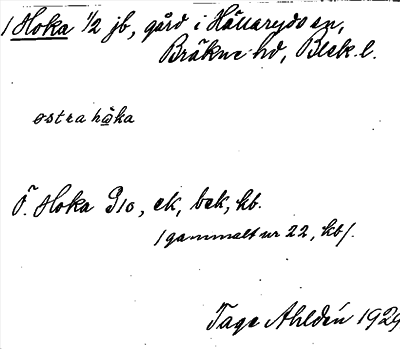 / Hoka 1/2 jb, gård i Hällaryds sn,
Bräkne hd, Blek. l.
østra håka
Ö. Hoka G10, ek, bek, kb.
/gammalt nr 22, kb/.
Tage Ahldén 1929